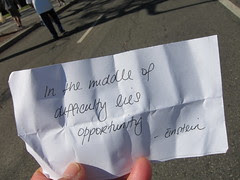 In the middle of
difficulty lies
opportunity
- Einstein